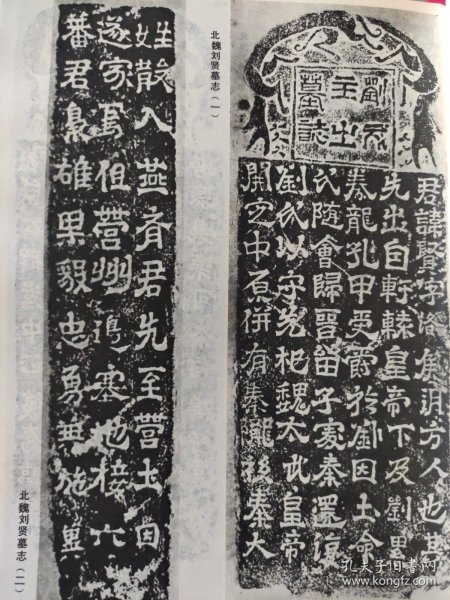 北魏刘贤墓志(一)
劉戌
主之
墓誌
君諱賢字洛侯朔方人也其
先出自軒轅皇帝下及劉累
豢龍孔甲受爵於劉因土命
氏隨會歸晉留子處秦還復
劉氏以守先祀魏太武皇帝
開定中原併有秦隴移秦大
姓散入燕齊君先至營土因
遂家焉但營州邊塞地接六
蕃君梟雄果毅忠勇兼施冀
北魏刘贤墓志(二)
孔夫子旧书网